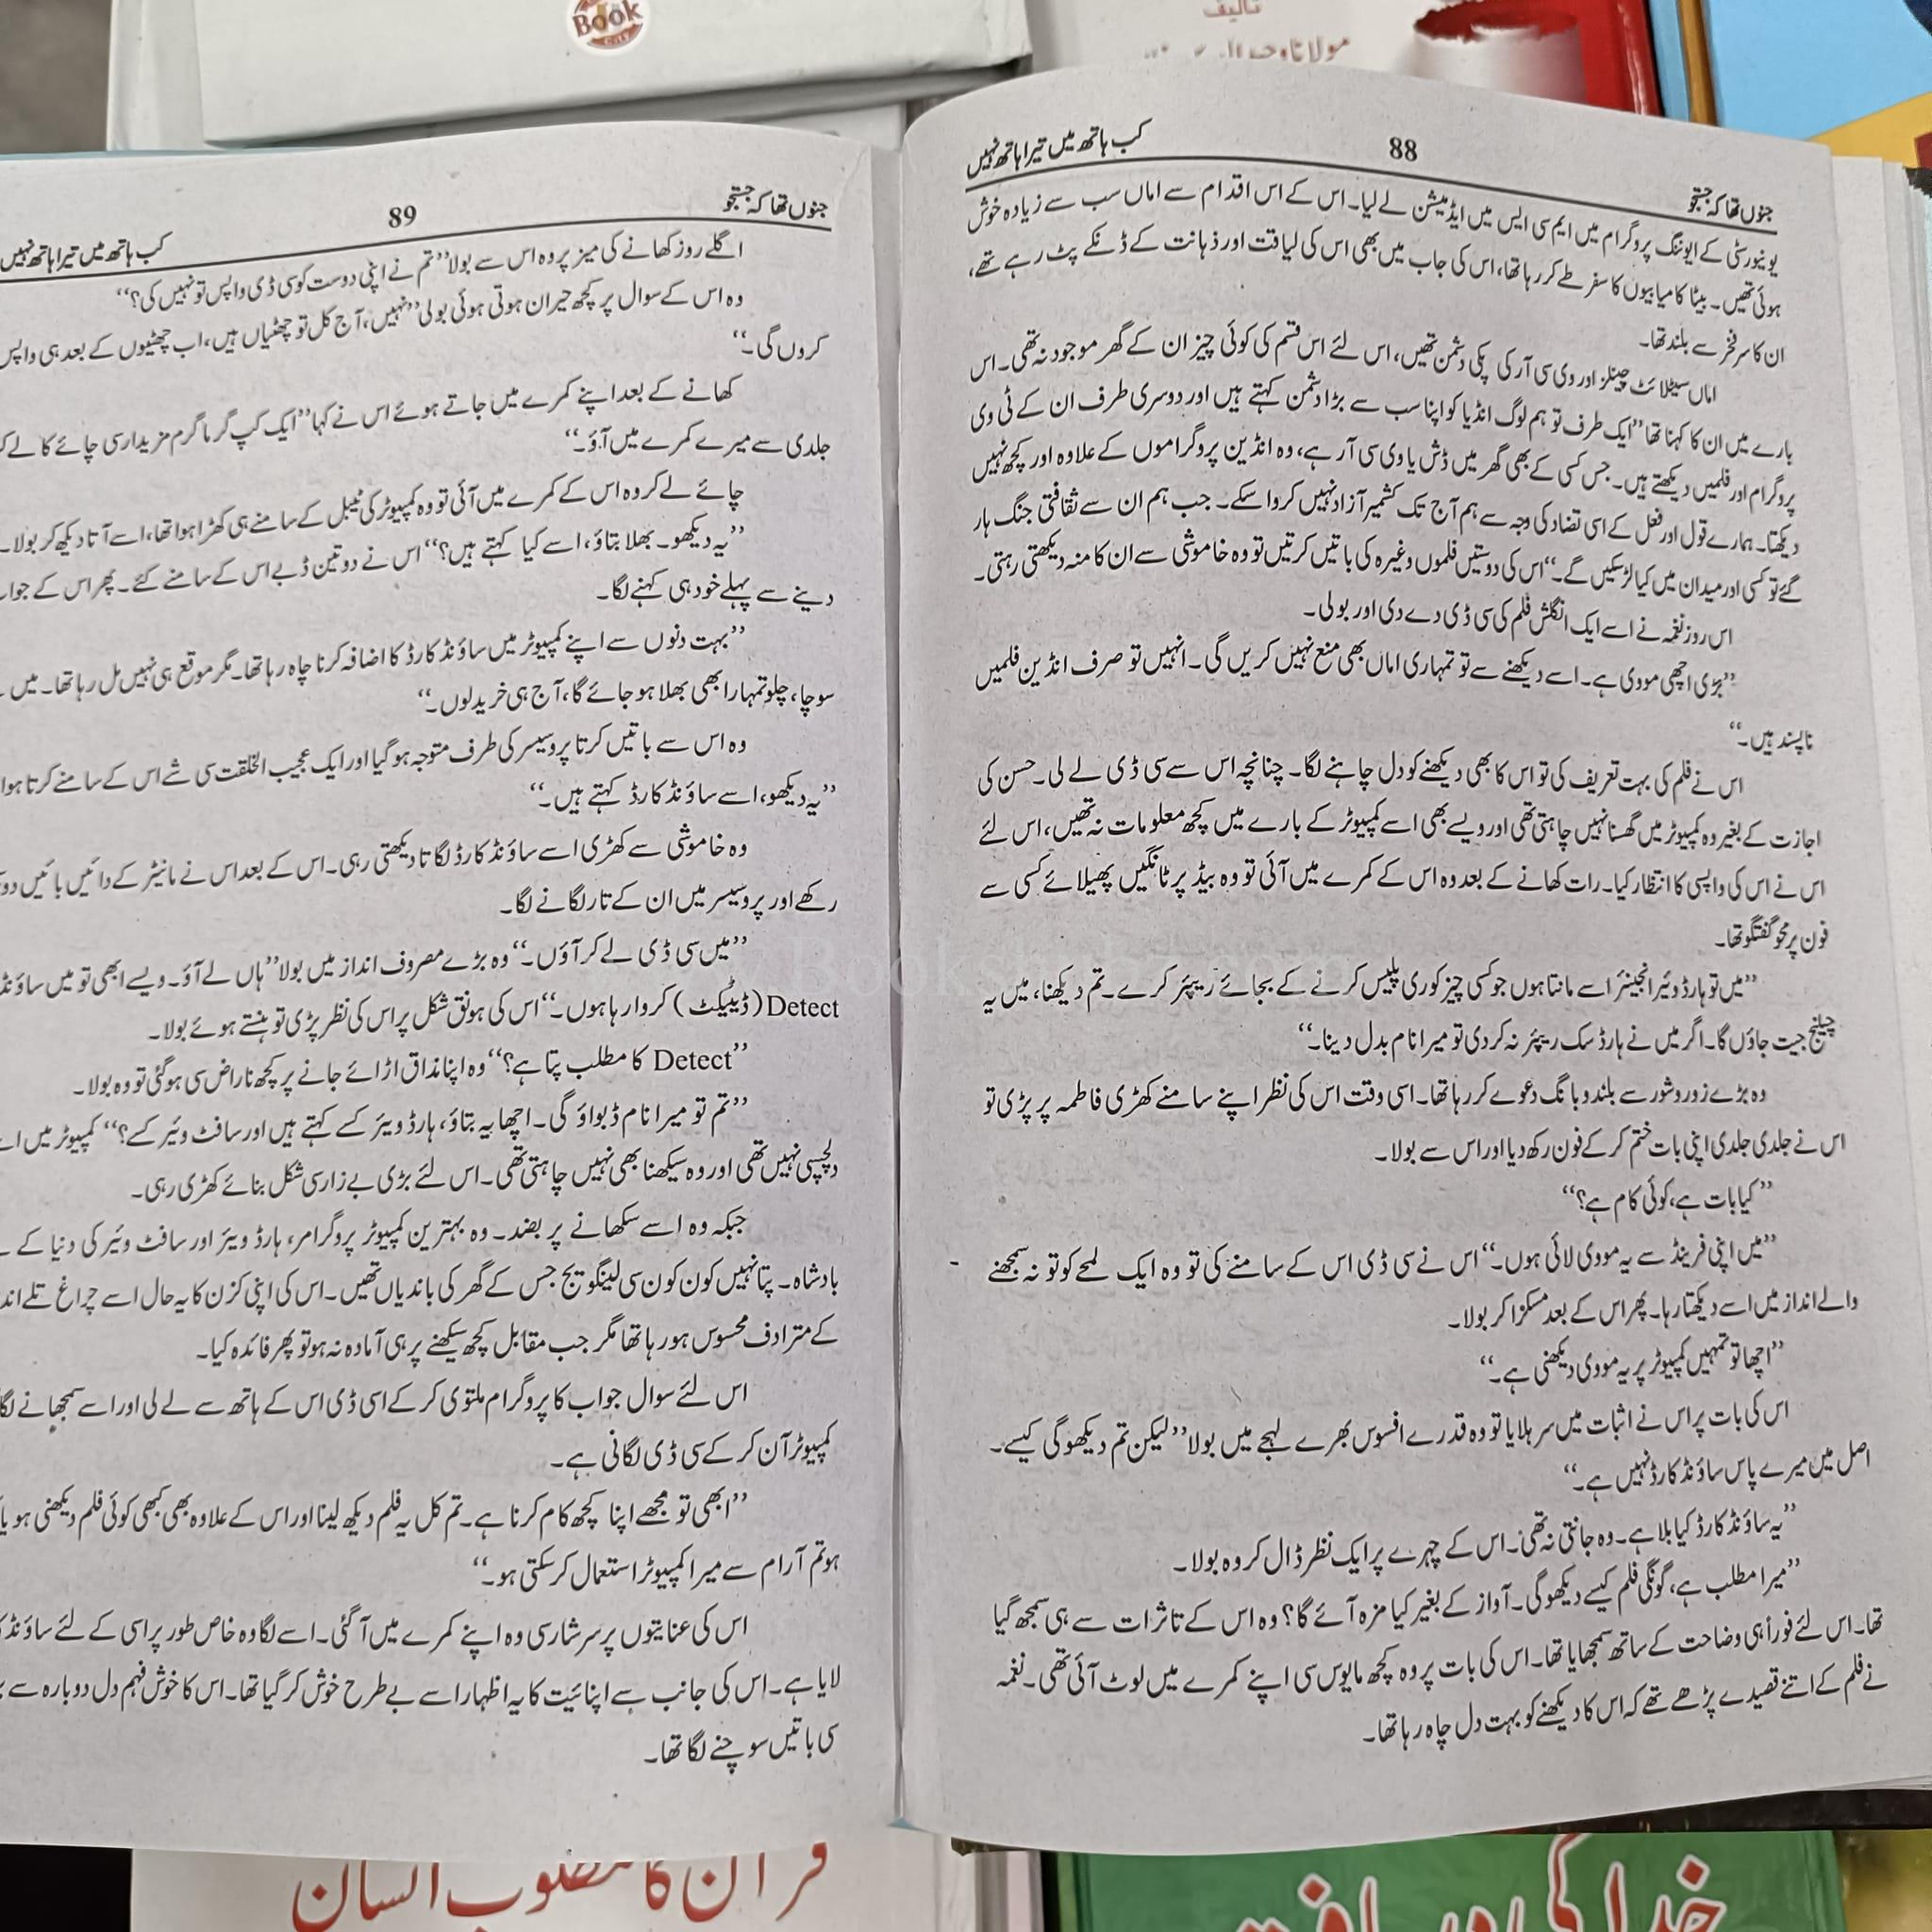 Book
CITY
تالیف
مولانا وحید
جنوں تھا کہ جستجو
88
کب ہاتھ میں تیرا ہاتھ نہیں
یونیورسٹی کے ایوننگ پروگرام میں ایم سی ایس میں ایڈمیشن لے لیا۔ اس کے اس اقدام سے اماں سب سے زیادہ خوش
ہوئی تھیں۔ بیٹا کامیابیوں کا سفر طے کر رہا تھا، اس کی جاب میں بھی اس کی لیاقت اور ذہانت کے ڈنکے پٹ رہے تھے،
ان کا سر فخر سے بلند تھا۔
اماں سیٹلائٹ چینلز اور وی سی آر کی پکی دشمن تھیں، اس لئے اس قسم کی کوئی چیز ان کے گھر موجود نہ تھی۔ اس
بارے میں ان کا کہنا تھا ’’ایک طرف تو ہم لوگ انڈیا کو اپنا سب سے بڑا دشمن کہتے ہیں اور دوسری طرف ان کے ٹی وی
پروگرام اور فلمیں دیکھتے ہیں۔ جس کسی کے بھی گھر میں ڈش یا وی سی آر ہے، وہ انڈین پروگراموں کے علاوہ اور کچھ نہیں
دیکھتا۔ ہمارے قول اور فعل کے اسی تضاد کی وجہ سے ہم آج تک کشمیر آزاد نہیں کروا سکے۔ جب ہم ان سے ثقافتی جنگ ہار
گئے تو کسی اور میدان میں کیا لڑ سکیں گے۔‘‘ اس کی دوستیں فلموں وغیرہ کی باتیں کرتیں تو وہ خاموشی سے ان کا منہ دیکھتی رہتی۔
اس روز نغمہ نے اسے ایک انگلش فلم کی سی ڈی دے دی اور بولی۔
’’بڑی اچھی مووی ہے۔ اسے دیکھنے سے تو تمہاری اماں بھی منع نہیں کریں گی۔ انہیں تو صرف انڈین فلمیں
ناپسند ہیں۔‘‘
اس نے فلم کی بہت تعریف کی تو اس کا بھی دیکھنے کو دل چاہنے لگا۔ چنانچہ اس سے سی ڈی لے لی۔ حسن کی
اجازت کے بغیر وہ کمپیوٹر میں گھسنا نہیں چاہتی تھی اور ویسے بھی اسے کمپیوٹر کے بارے میں کچھ معلومات نہ تھیں، اس لئے
اس نے اس کی واپسی کا انتظار کیا۔ رات کھانے کے بعد وہ اس کے کمرے میں آئی تو وہ بیڈ پر ٹانگیں پھیلائے کسی سے
فون پر محو گفتگو تھا۔
’’میں تو ہارڈ ویئر انجینئر اسے مانتا ہوں جو کسی چیز کو ری پلیس کرنے کے بجائے ریپئر کرے۔ تم دیکھنا، میں یہ
چیلنج جیت جاؤں گا۔ اگر میں نے ہارڈ سک ریپئر نہ کر دی تو میرا نام بدل دینا۔‘‘
وہ بڑے زور و شور سے بلند و بانگ دعوے کر رہا تھا۔ اسی وقت اس کی نظر اپنے سامنے کھڑی فاطمہ پر پڑی تو
اس نے جلدی جلدی اپنی بات ختم کر کے فون رکھ دیا اور اس سے بولا۔
’’کیا بات ہے، کوئی کام ہے؟‘‘
’’میں اپنی فرینڈ سے یہ مووی لائی ہوں۔‘‘ اس نے سی ڈی اس کے سامنے کی تو وہ ایک لمحے کو تو نہ سمجھنے
والے انداز میں اسے دیکھتا رہا۔ پھر اس کے بعد مسکرا کر بولا۔
’’اچھا تو تمہیں کمپیوٹر پر یہ مووی دیکھنی ہے۔‘‘
اس کی بات پر اس نے اثبات میں سر ہلایا تو وہ قدرے افسوس بھرے لہجے میں بولا ’’لیکن تم دیکھو گی کیسے۔
اصل میں میرے پاس ساؤنڈ کارڈ نہیں ہے۔‘‘
’’یہ ساؤنڈ کارڈ کیا بلا ہے۔ وہ جانتی نہ تھی۔ اس کے چہرے پر ایک نظر ڈال کر وہ بولا۔
’’میرا مطلب ہے، گونگی فلم کیسے دیکھو گی۔ آواز کے بغیر کیا مزہ آئے گا؟ وہ اس کے تاثرات سے ہی سمجھ گیا
تھا۔ اس لئے فوراً ہی وضاحت کے ساتھ سمجھایا تھا۔ اس کی بات پر وہ کچھ مایوس سی اپنے کمرے میں لوٹ آئی تھی۔ نغمہ
نے فلم کے اتنے قصیدے پڑھے تھے کہ اس کا دیکھنے کو بہت دل چاہ رہا تھا۔
جنوں تھا کہ جستجو
89
کب ہاتھ میں تیرا ہاتھ نہیں
اگلے روز کھانے کی میز پر وہ اس سے بولا ’’تم نے اپنی دوست کو سی ڈی واپس تو نہیں کی؟‘‘
وہ اس کے سوال پر کچھ حیران ہوتی ہوئی بولی ’’نہیں، آج کل تو چھٹیاں ہیں، اب چھٹیوں کے بعد ہی واپس
کروں گی۔‘‘
کھانے کے بعد اپنے کمرے میں جاتے ہوئے اس نے کہا ’’ایک کپ گرما گرم مزیدار سی چائے کا لے کر
جلدی سے میرے کمرے میں آؤ۔‘‘
چائے لے کر وہ اس کے کمرے میں آئی تو وہ کمپیوٹر کی ٹیبل کے سامنے ہی کھڑا ہوا تھا، اسے آتا دیکھ کر بولا۔
’’یہ دیکھو۔ بھلا بتاؤ، اسے کیا کہتے ہیں؟‘‘ اس نے دو تین ڈبے اس کے سامنے کئے۔ پھر اس کے جواب
دینے سے پہلے خود ہی کہنے لگا۔
’’بہت دنوں سے اپنے کمپیوٹر میں ساؤنڈ کارڈ کا اضافہ کرنا چاہ رہا تھا۔ مگر موقع ہی نہیں مل رہا تھا۔ میں
سوچا، چلو تمہارا بھی بھلا ہو جائے گا، آج ہی خرید لوں۔‘‘
وہ اس سے باتیں کرتا پروسیسر کی طرف متوجہ ہو گیا اور ایک عجیب الخلقت سی شے اس کے سامنے کرتا ہوا
’’یہ دیکھو، اسے ساؤنڈ کارڈ کہتے ہیں۔‘‘
وہ خاموشی سے کھڑی اسے ساؤنڈ کارڈ لگاتا دیکھتی رہی۔ اس کے بعد اس نے مانیٹر کے دائیں بائیں دو
رکھے اور پروسیسر میں ان کے تار لگانے لگا۔
’’میں سی ڈی لے کر آؤں۔‘‘ وہ بڑے مصروف انداز میں بولا ’’ہاں لے آؤ۔ ویسے ابھی تو میں ساؤنڈ
Detect (ڈیٹیکٹ) کروا رہا ہوں۔‘‘ اس کی ہونق شکل پر اس کی نظر پڑی تو ہنستے ہوئے بولا۔
’’Detect کا مطلب پتا ہے؟‘‘ وہ اپنا مذاق اڑائے جانے پر کچھ ناراض سی ہو گئی تو وہ بولا۔
’’تم تو میرا نام ڈبواؤ گی۔ اچھا یہ بتاؤ، ہارڈ ویئر کسے کہتے ہیں اور سافٹ وئیر کسے؟‘‘ کمپیوٹر میں اسے
دلچسپی نہیں تھی اور وہ سیکھنا بھی نہیں چاہتی تھی۔ اس لئے بڑی بے زار سی شکل بنائے کھڑی رہی۔
جبکہ وہ اسے سکھانے پر بضد۔ وہ بہترین کمپیوٹر پروگرامر، ہارڈ ویئر اور سافٹ وئیر کی دنیا کے
بادشاہ۔ پتا نہیں کون کون سی لینگویج جس کے گھر کی باندیاں تھیں۔ اس کی اپنی کزن کا یہ حال اسے چراغ تلے
کے مترادف محسوس ہو رہا تھا مگر جب مقابل کچھ سیکھنے پر ہی آمادہ نہ ہو تو پھر فائدہ کیا۔
اس لئے سوال جواب کا پروگرام ملتوی کر کے اسی ڈی اس کے ہاتھ سے لے لی اور اسے سمجھانے لگا
کمپیوٹر آن کر کے سی ڈی لگانی ہے۔
’’ابھی تو مجھے اپنا کچھ کام کرنا ہے۔ تم کل یہ فلم دیکھ لینا اور اس کے علاوہ بھی کبھی کوئی فلم دیکھنی ہو یا
ہو تم آرام سے میرا کمپیوٹر استعمال کر سکتی ہو۔‘‘
اس کی عنایتوں پر سرشار سی وہ اپنے کمرے میں آ گئی۔ اسے لگا وہ خاص طور پر اسی کے لئے ساؤنڈ
لایا ہے۔ اس کی جانب سے اپنائیت کا یہ اظہار اسے بے طرح خوش کر گیا تھا۔ اس کا خوش فہم دل دوبارہ سے
سی باتیں سوچنے لگا تھا۔
قرآن کا مطلوب انسان
خدا کی دریافت